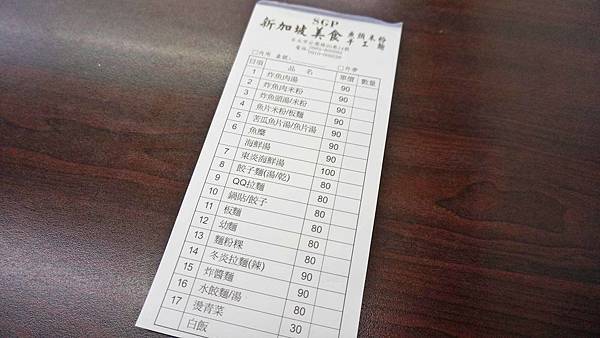 SGP
新加坡美食 魚頭米粉 手工麵
□內用 桌號: □外帶
目項 品名 單價 數量
1 炸魚肉湯 90
2 炸魚肉米粉 90
3 炸魚頭湯/米粉 90
4 魚片米粉/板麵 90
5 苦瓜魚片湯/魚片湯 90
6 魚糜 90
海鮮湯 90
7 東炎海鮮湯 100
8 餃子麵(湯/乾) 80
9 QQ拉麵 80
10 鍋貼/餃子 80
11 板麵 80
12 幼麵 80
13 麵粉粿 80
14 冬炎拉麵(辣) 90
15 炸醬麵 90
16 水餃麵/湯 80
17 燙青菜 30
白飯